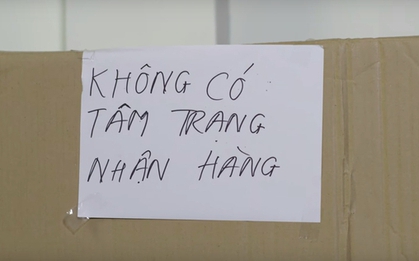 KHÔNG CÓ
TÂM TRẠNG
NHẬN HÀNG